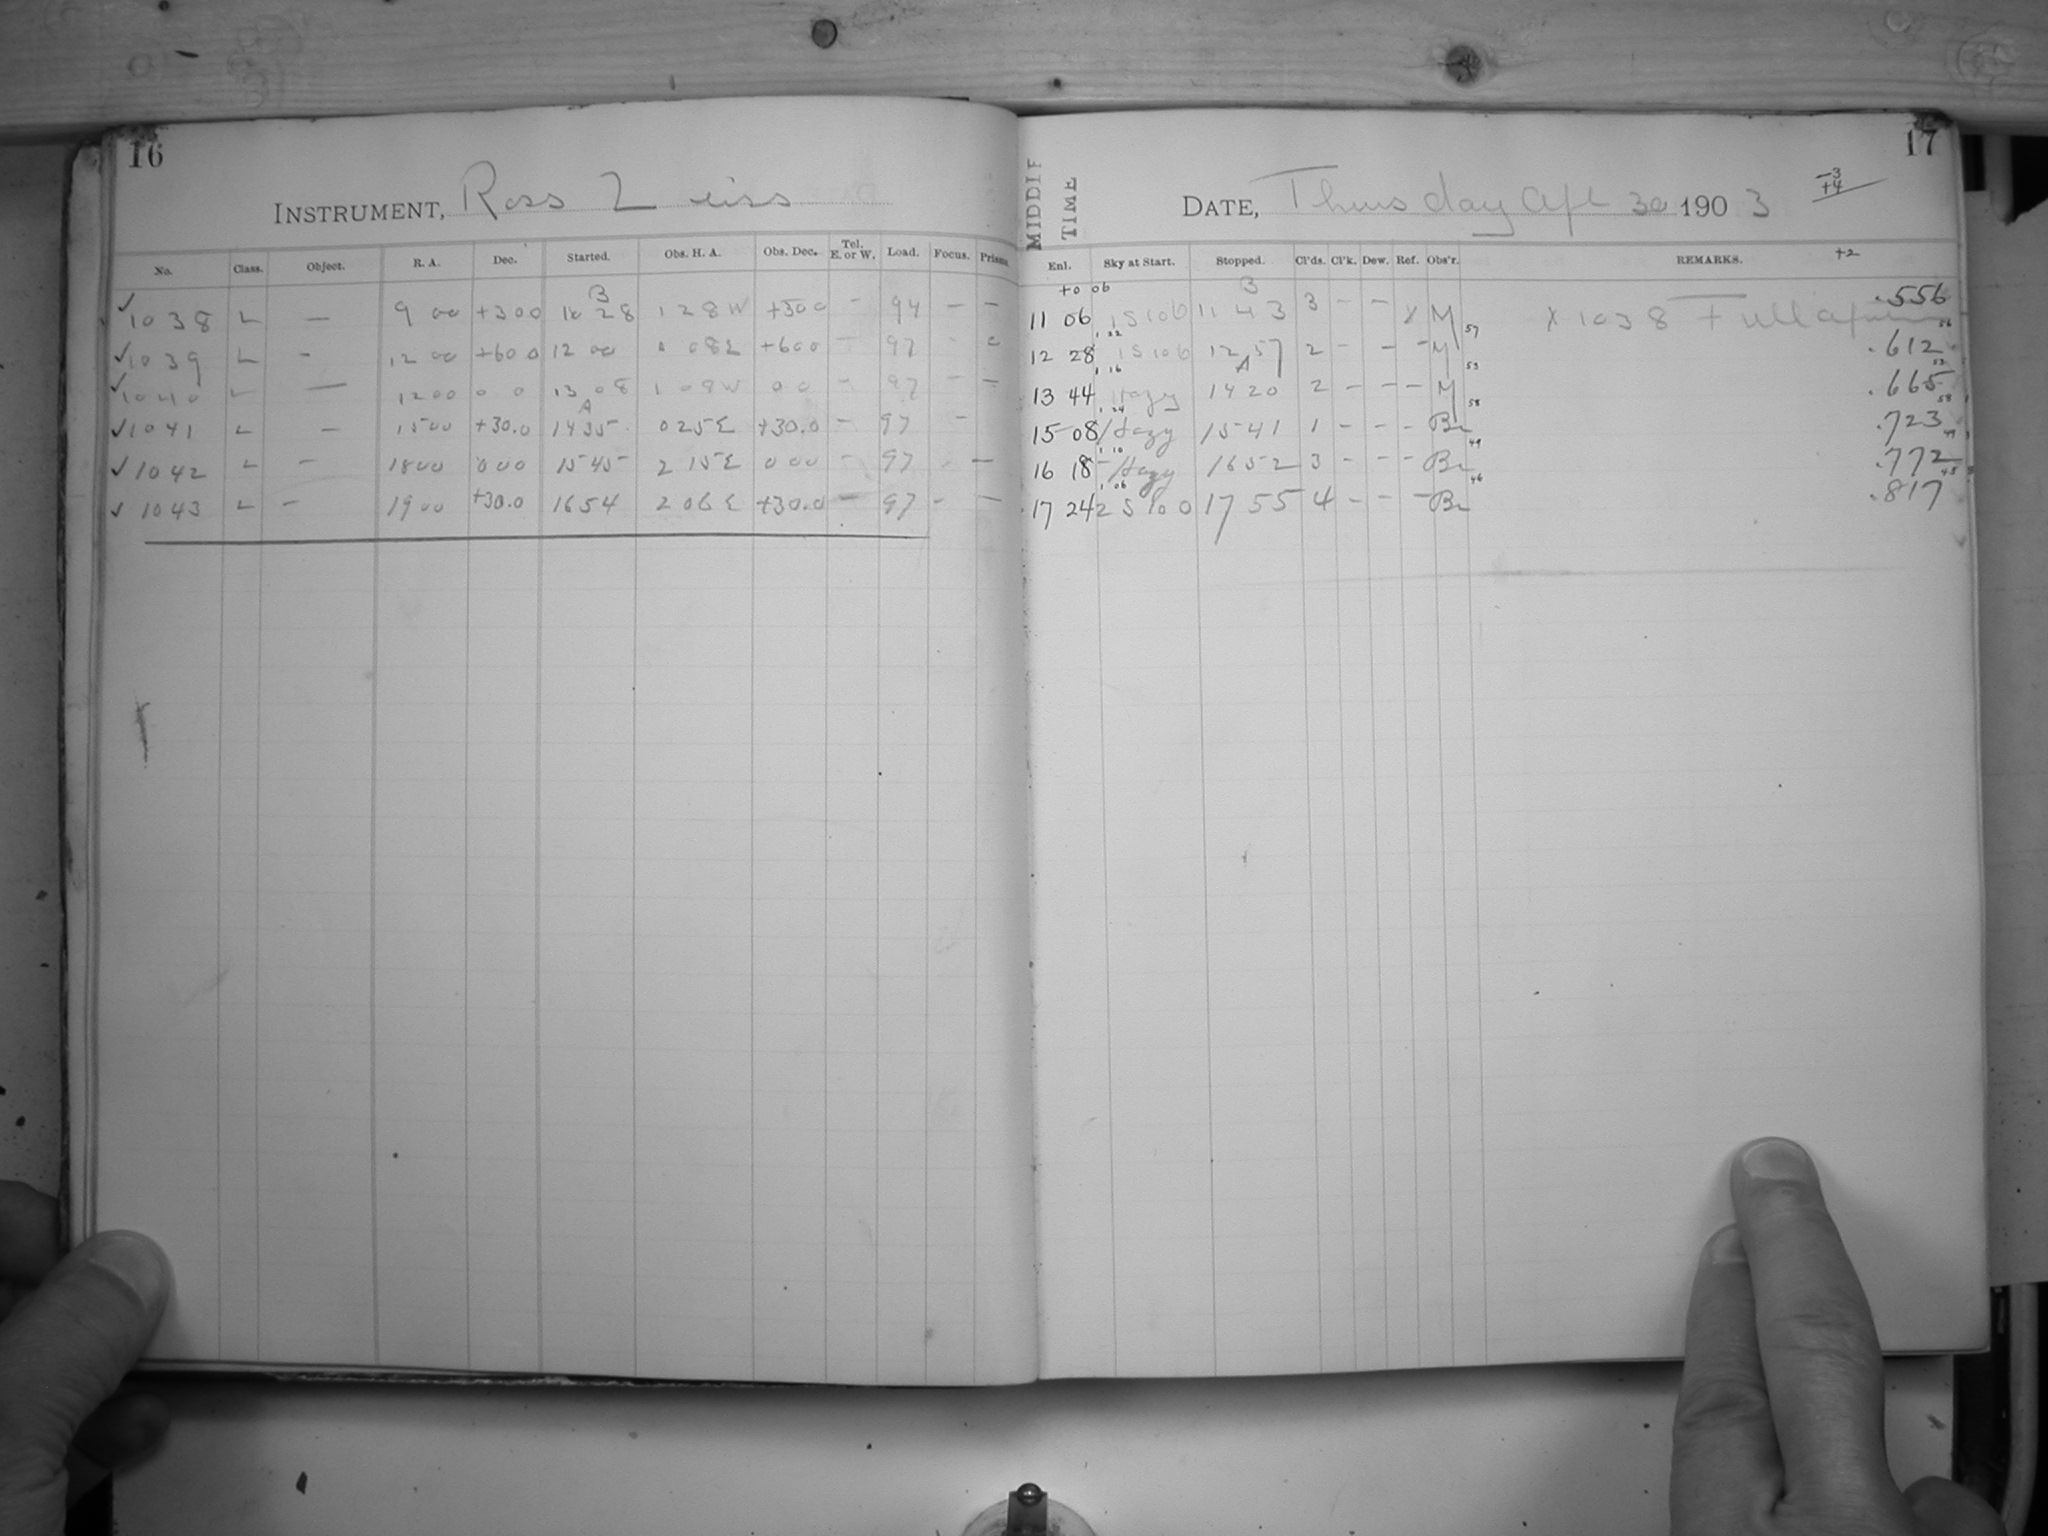 16
INSTRUMENT, Ross Zeiss
No. Class. Object. R. A. Dec. Started. Obs. H. A. Obs. Dec. Tel. E. or W. Load. Focus. Prisms
B
✓ 1038 L — 9 00 +300 10 28 1 28 W +300 - 94 — —
✓ 1039 L - 12 00 +600 12 00 0 08 E +600 - 97 -
✓ 1040 L — 1200 0 0 13 08 1 08 W 0 0 - 97 - —
A
✓ 1041 L — 1500 +30.0 1435 0 25 E +30.0 - 97 -
✓ 1042 L - 1800 0 00 1545 2 15 E 0 00 - 97 - —
✓ 1043 L - 1900 +30.0 1654 2 06 E +30.0 - 97 - —
17
MIDDLE
TIME
DATE, Thursday Apl 30 1903
-3
+4
+2
Enl. Sky at Start. Stopped. Cl'ds. Cl'k. Dew. Ref. Obs'r. REMARKS.
+0 06
B
11 06 1 S 10 0 11 43 3 - - X M X 1038 Full .556
1 22 57 56
12 28 1 S 10 0 12 57 2 - - - M .612
1 16 A 53 53
13 44 Hazy 1420 2 - - - M .665
1 24 58 58
15 08 Hazy 1541 1 - - - Br .723
1 10 49 49
16 18 Hazy 1652 3 - - - Br .772
1 06 46 45
17 24 2 S 10 0 17 55 4 - - - Br .817